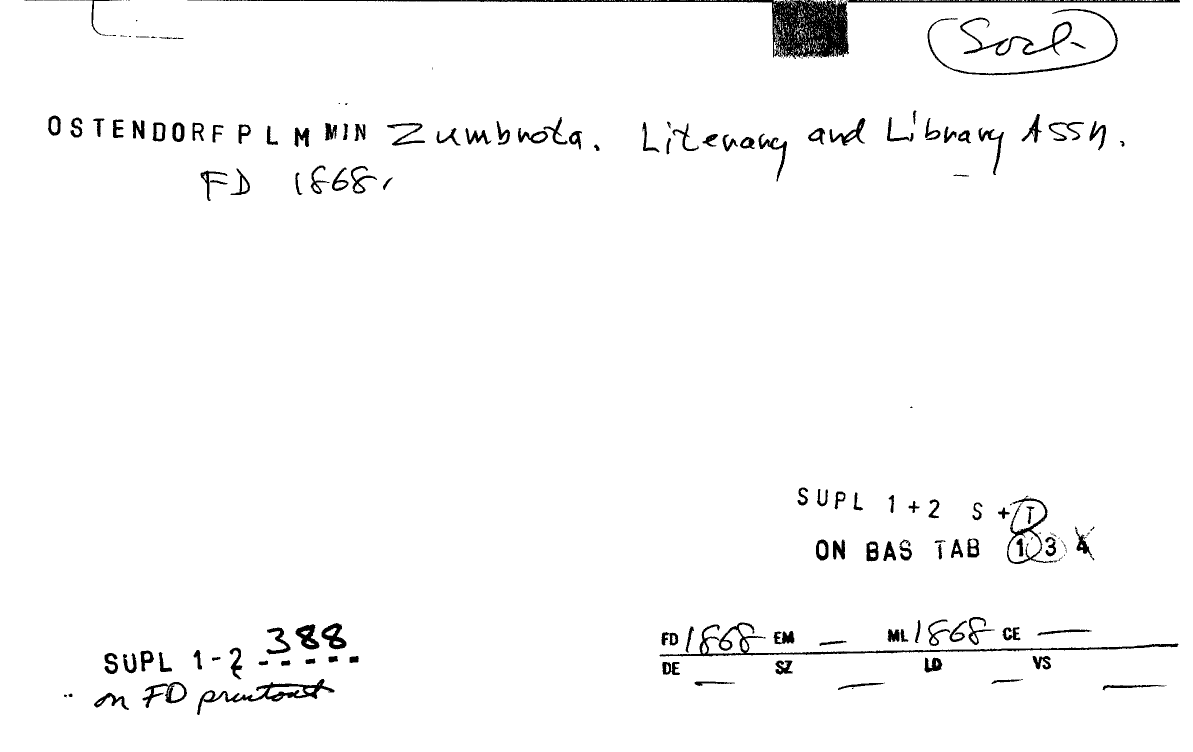 Socl.
OSTENDORF P L M MIN Zumbrota. Literary and Library Assn.
FD 1868.
SUPL 1+2 S + T
ON BAS TAB 1 3 4
SUPL 1-2 388
on FD printout
FD 1868 EM — ML 1868 CE —
DE — SZ — LD — VS —